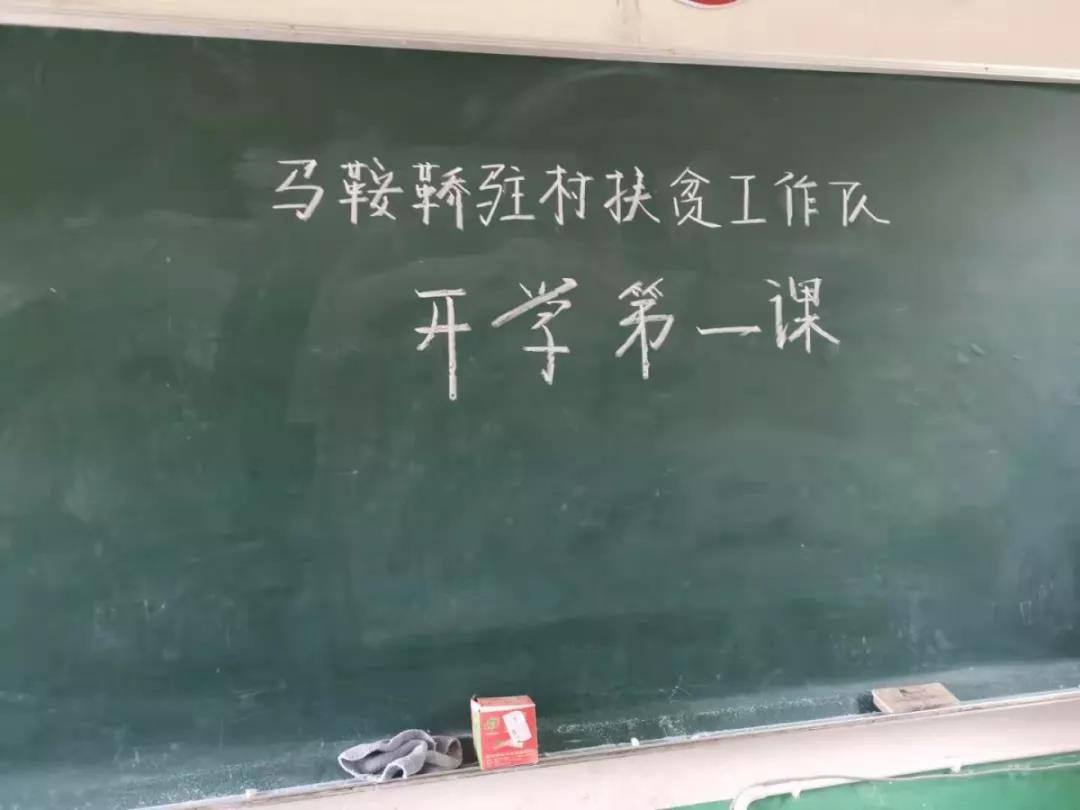 马鞍鞒驻村扶贫工作队
开学第一课